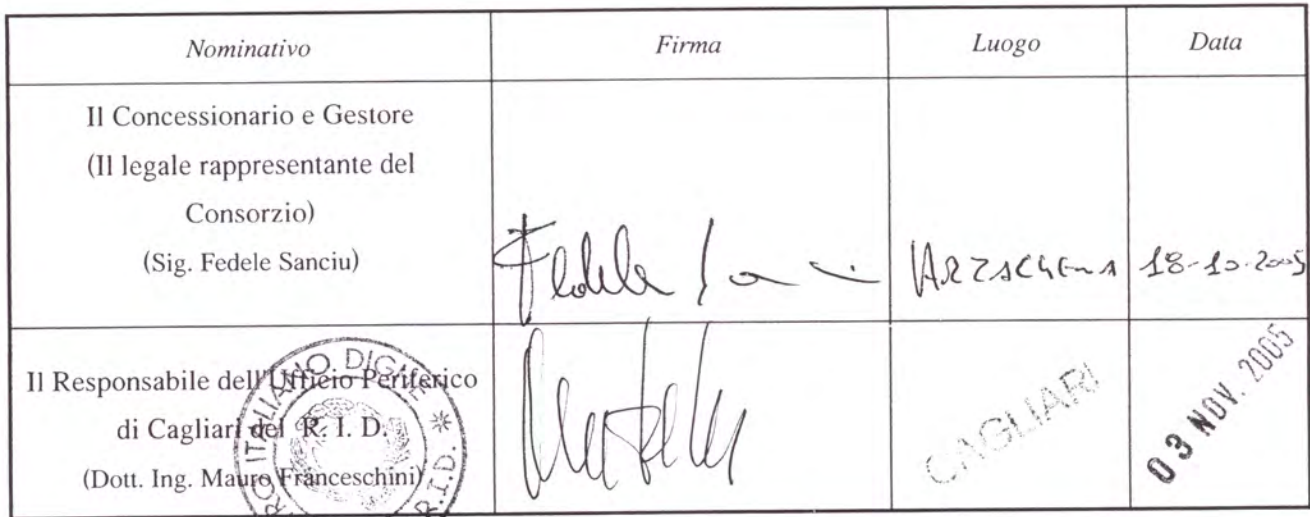 Nominativo Firma Luogo Data
Il Concessionario e Gestore
(Il legale rappresentante del
Consorzio)
(Sig. Fedele Sanciu)
Fedele
ARZACHENA 18-10-2005
Il Responsabile dell'Ufficio Periferico
di Cagliari del R. I. D.
(Dott. Ing. Mauro Franceschini)
RO ITALIANO DIGHE * R.I.D. *
CAGLIARI
03 NOV. 2005